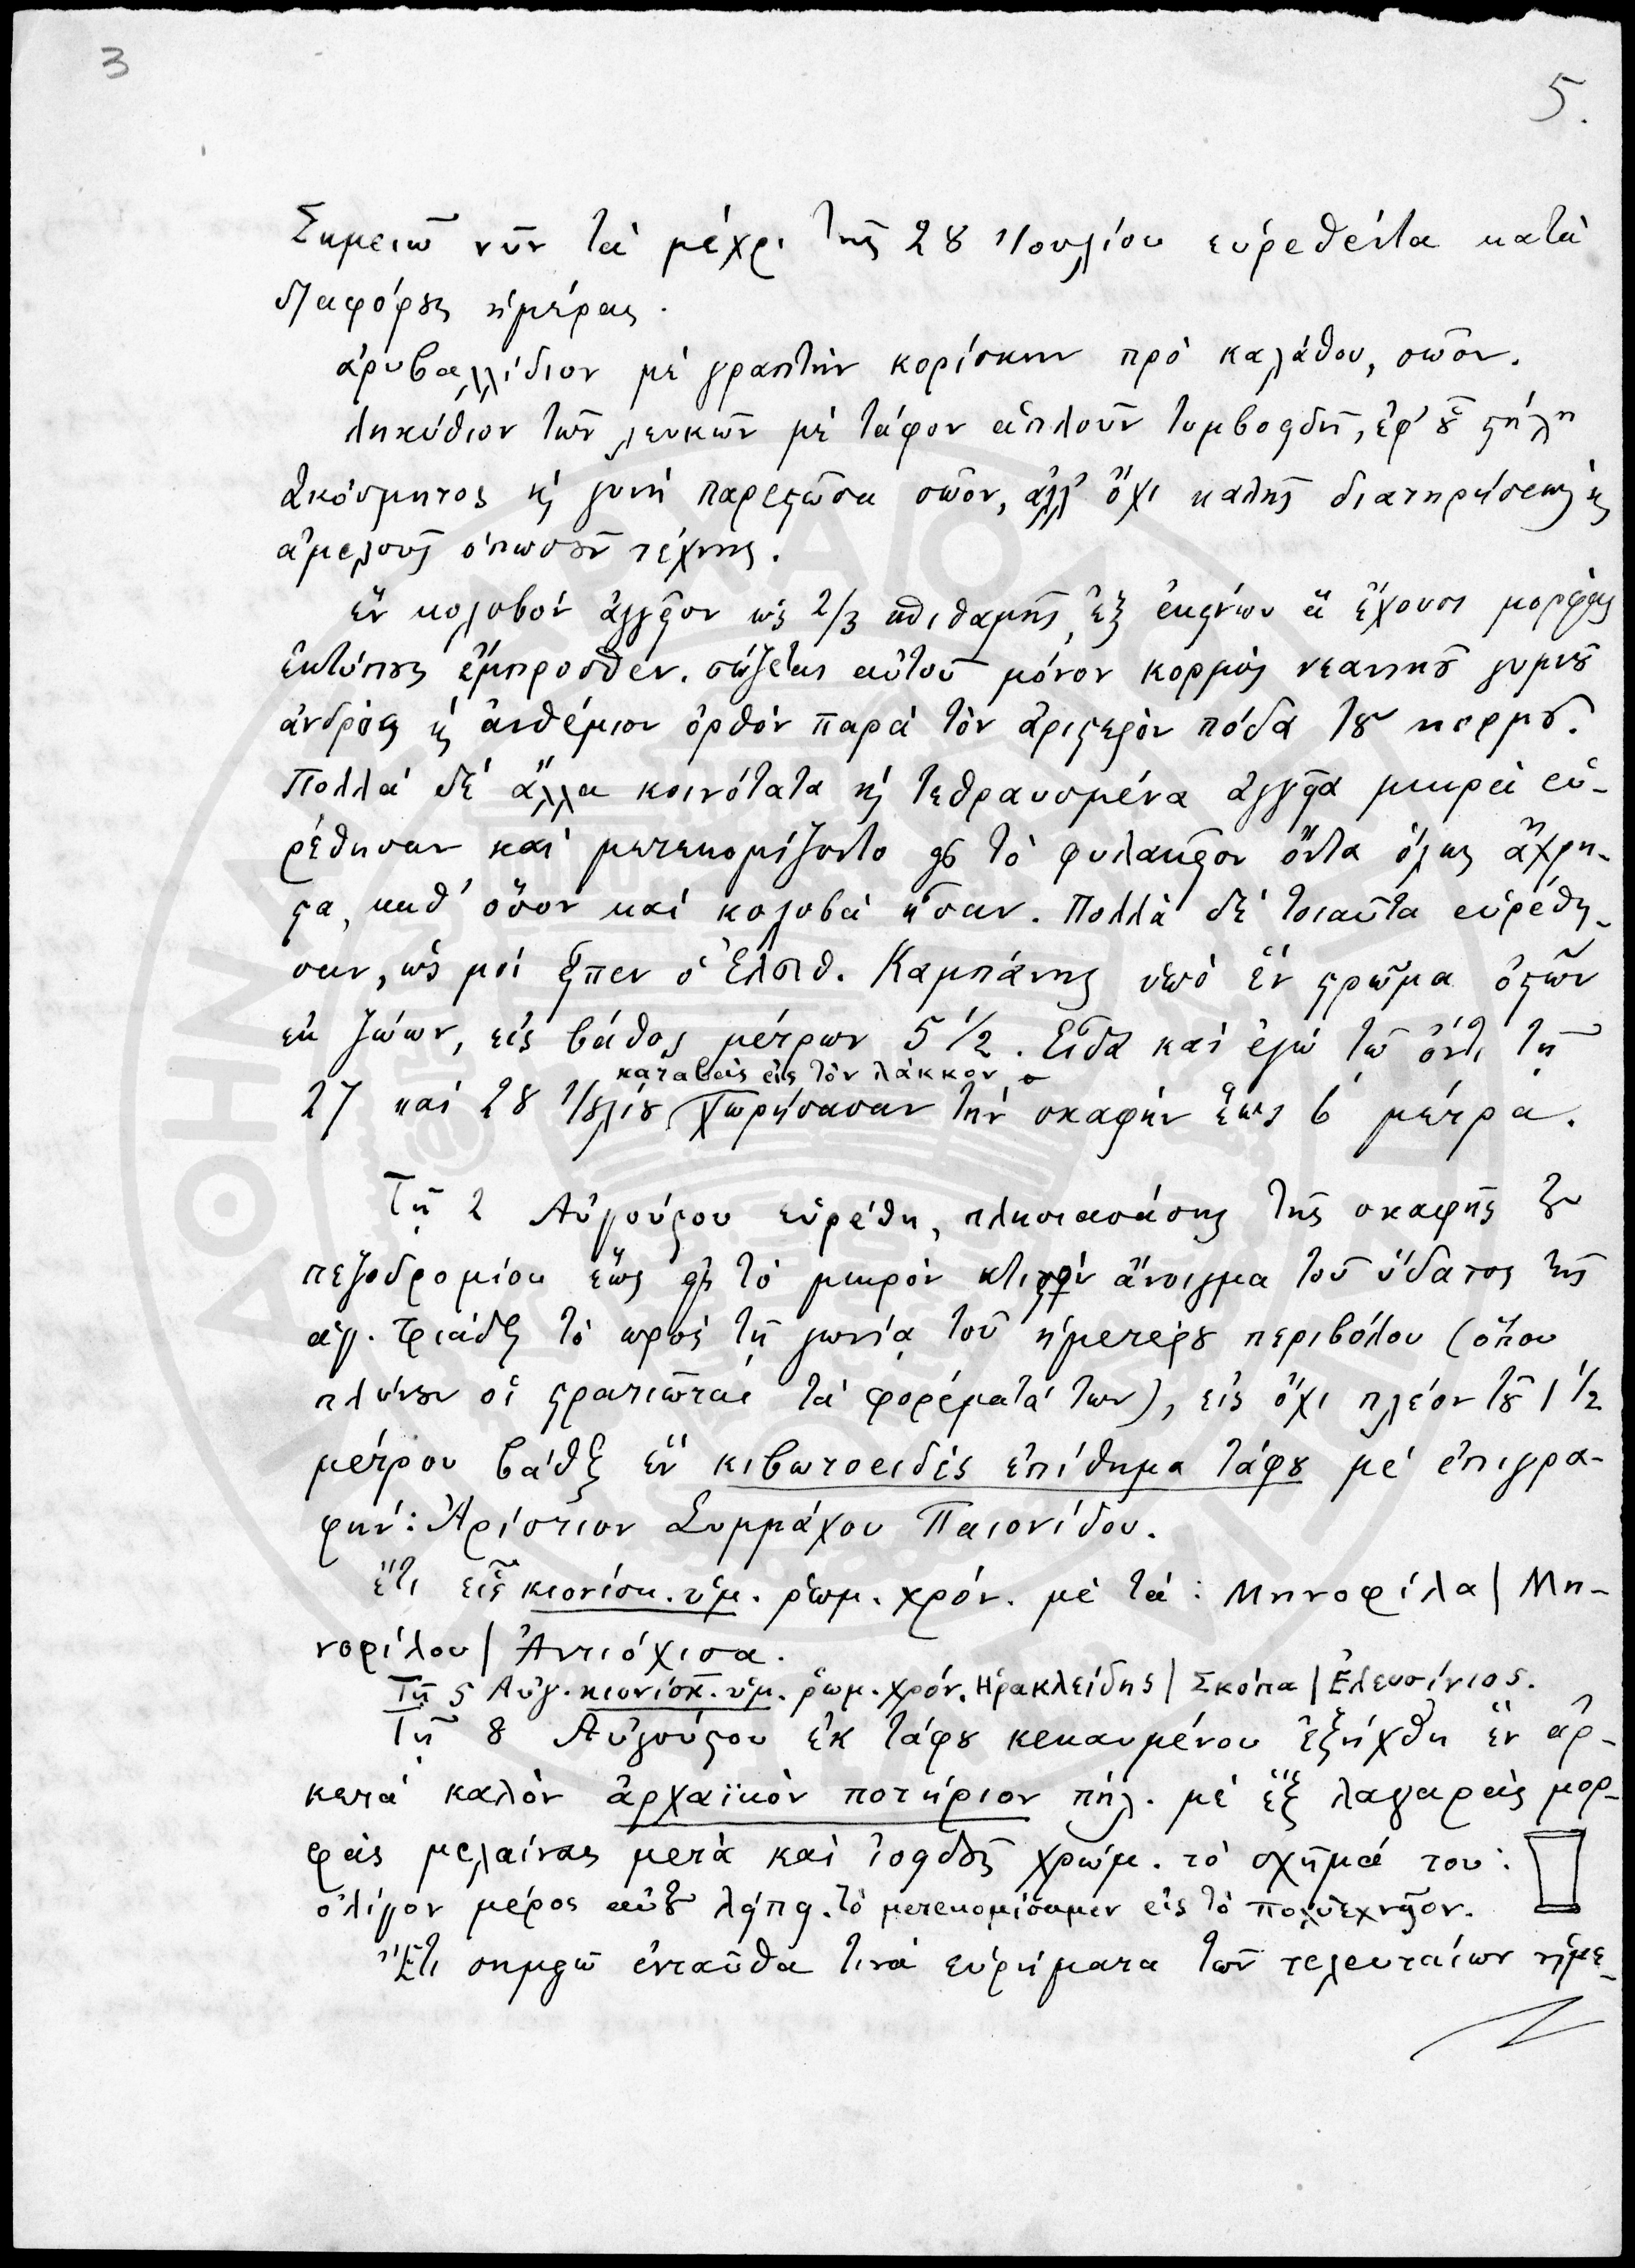 3
5.
Σημειῶ νῦν τὰ μέχρι τῆς 28 Ἰουλίου εὑρεθέντα κατὰ
διαφόρους ἡμέρας.
ἀρυβαλλίδιον μὲ γραπτὴν κορίσκην πρὸ καλάθου, σῶον.
ληκύθιον τῶν λευκῶν μὲ τάφον ἁπλοῦν τυμβοειδῆ, ἐφ' οὗ στήλη
ἀκόσμητος καὶ γυνὴ παρεστῶσα σῶον, ἀλλ' ὄχι καλῆς διατηρήσεως καὶ
ἀμελοῦς ὁπωσοῦν τέχνης.
ἓν κολοβὸν ἀγγεῖον ὡς 2/3 σπιθαμῆς, ἐξ ἐκείνων ἃ ἔχουσι μορφὰς
ἐκτύπους ἔμπροσθεν. σώζεται αὐτοῦ μόνον κορμὸς νεανικοῦ γυμνοῦ
ἀνδρὸς καὶ ἀνθέμιον ὀρθὸν παρὰ τὸν ἀριστερὸν πόδα τοῦ κορμοῦ.
Πολλὰ δὲ ἄλλα κοινότατα καὶ τεθραυσμένα ἀγγεῖα μικρὰ εὑ-
ρέθησαν καὶ μετεκομίζοντο εἰς τὸ φυλακεῖον ὄντα ὅλως ἄχρη-
στα, καθ' ὅσον καὶ κολοβὰ ἦσαν. Πολλὰ δὲ τοιαῦτα εὑρέθη-
σαν, ὡς μοὶ εἶπεν ὁ Ἐλπιδ. Καμπάνης ὑπὸ ἓν στρῶμα ὀστῶν
ἐκ ζώων, εἰς βάθος μέτρων 5 1/2. Εἶδα καὶ ἐγὼ τῷ ὄντι τῇ
καταβὰς εἰς τὸν λάκκον
27 καὶ 28 Ἰουλίου χωρήσασαν τὴν σκαφὴν ἕως 6 μέτρα.
Τῇ 2 Αὐγούστου εὑρέθη, πλησιασάσης τῆς σκαφῆς τοῦ
πεζοδρομίου ἕως εἰς τὸ μικρὸν κτιστὸν ἄνοιγμα τοῦ ὕδατος τῆς
ἁγ. Τριάδος τὸ πρὸς τῇ γωνίᾳ τοῦ ἡμετέρου περιβόλου (ὅπου
πλύνουν οἱ στρατιῶται τὰ φορέματά των), εἰς ὄχι πλέον τοῦ 1 1/2
μέτρου βάθος ἓν κιβωτοειδὲς ἐπίθημα τάφου μὲ ἐπιγρα-
φήν: Ἀρίστιον Συμμάχου Παιονίδου.
ἔτι εἷς κιονίσκ. ὑμ. ῥωμ. χρόν. μὲ τά: Μηνοφίλα | Μη-
νοφίλου | Ἀντιόχισα.
Τῇ 5 Αὐγ. κιονίσκ. ὑμ. ῥωμ. χρόν. Ἡρακλείδης | Σκόπα | Ἐλευσίνιος.
Τῇ 8 Αὐγούστου ἐκ τάφου κεκαυμένου ἐξήχθη ἓν ἀρ-
κετὰ καλὸν ἀρχαϊκὸν ποτήριον πήλ. μὲ ἓξ λαγαρὰς μορ-
φὰς μελαίνας μετὰ καὶ ἰοειδοῦς χρώμ. τὸ σχῆμά του:
ὀλίγον μέρος αὐτοῦ λείπει. τὸ μετεκομίσαμεν εἰς τὸ πολυτεχνεῖον.
Ἔτι σημειῶ ἐνταῦθα τινὰ εὑρήματα τῶν τελευταίων ἡμε-